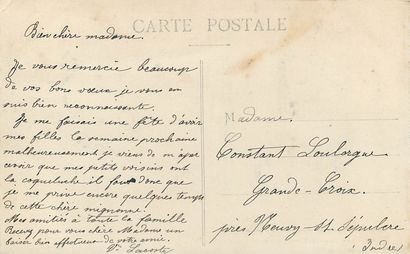 CARTE POSTALE
Bien chère madame.
Je vous remercie beaucoup
de vos bons vœux je vous en
suis bien reconnaissante.
Je me faisais une fête d'avoir
mes filles la semaine prochaine
malheureusement je viens de m'aper
cevoir que mes petits voisins ont
la coqueluche il faut donc que
je me prive encore quelques temps
de cette chère mignonne.
Mes amitiés à toute la famille
Recevez pour vous chère Madame un
baiser bien affectueux de votre amie.
Madame.
Constant
Grande-Croix
près Neuvy-St-Sépulcre
Indre